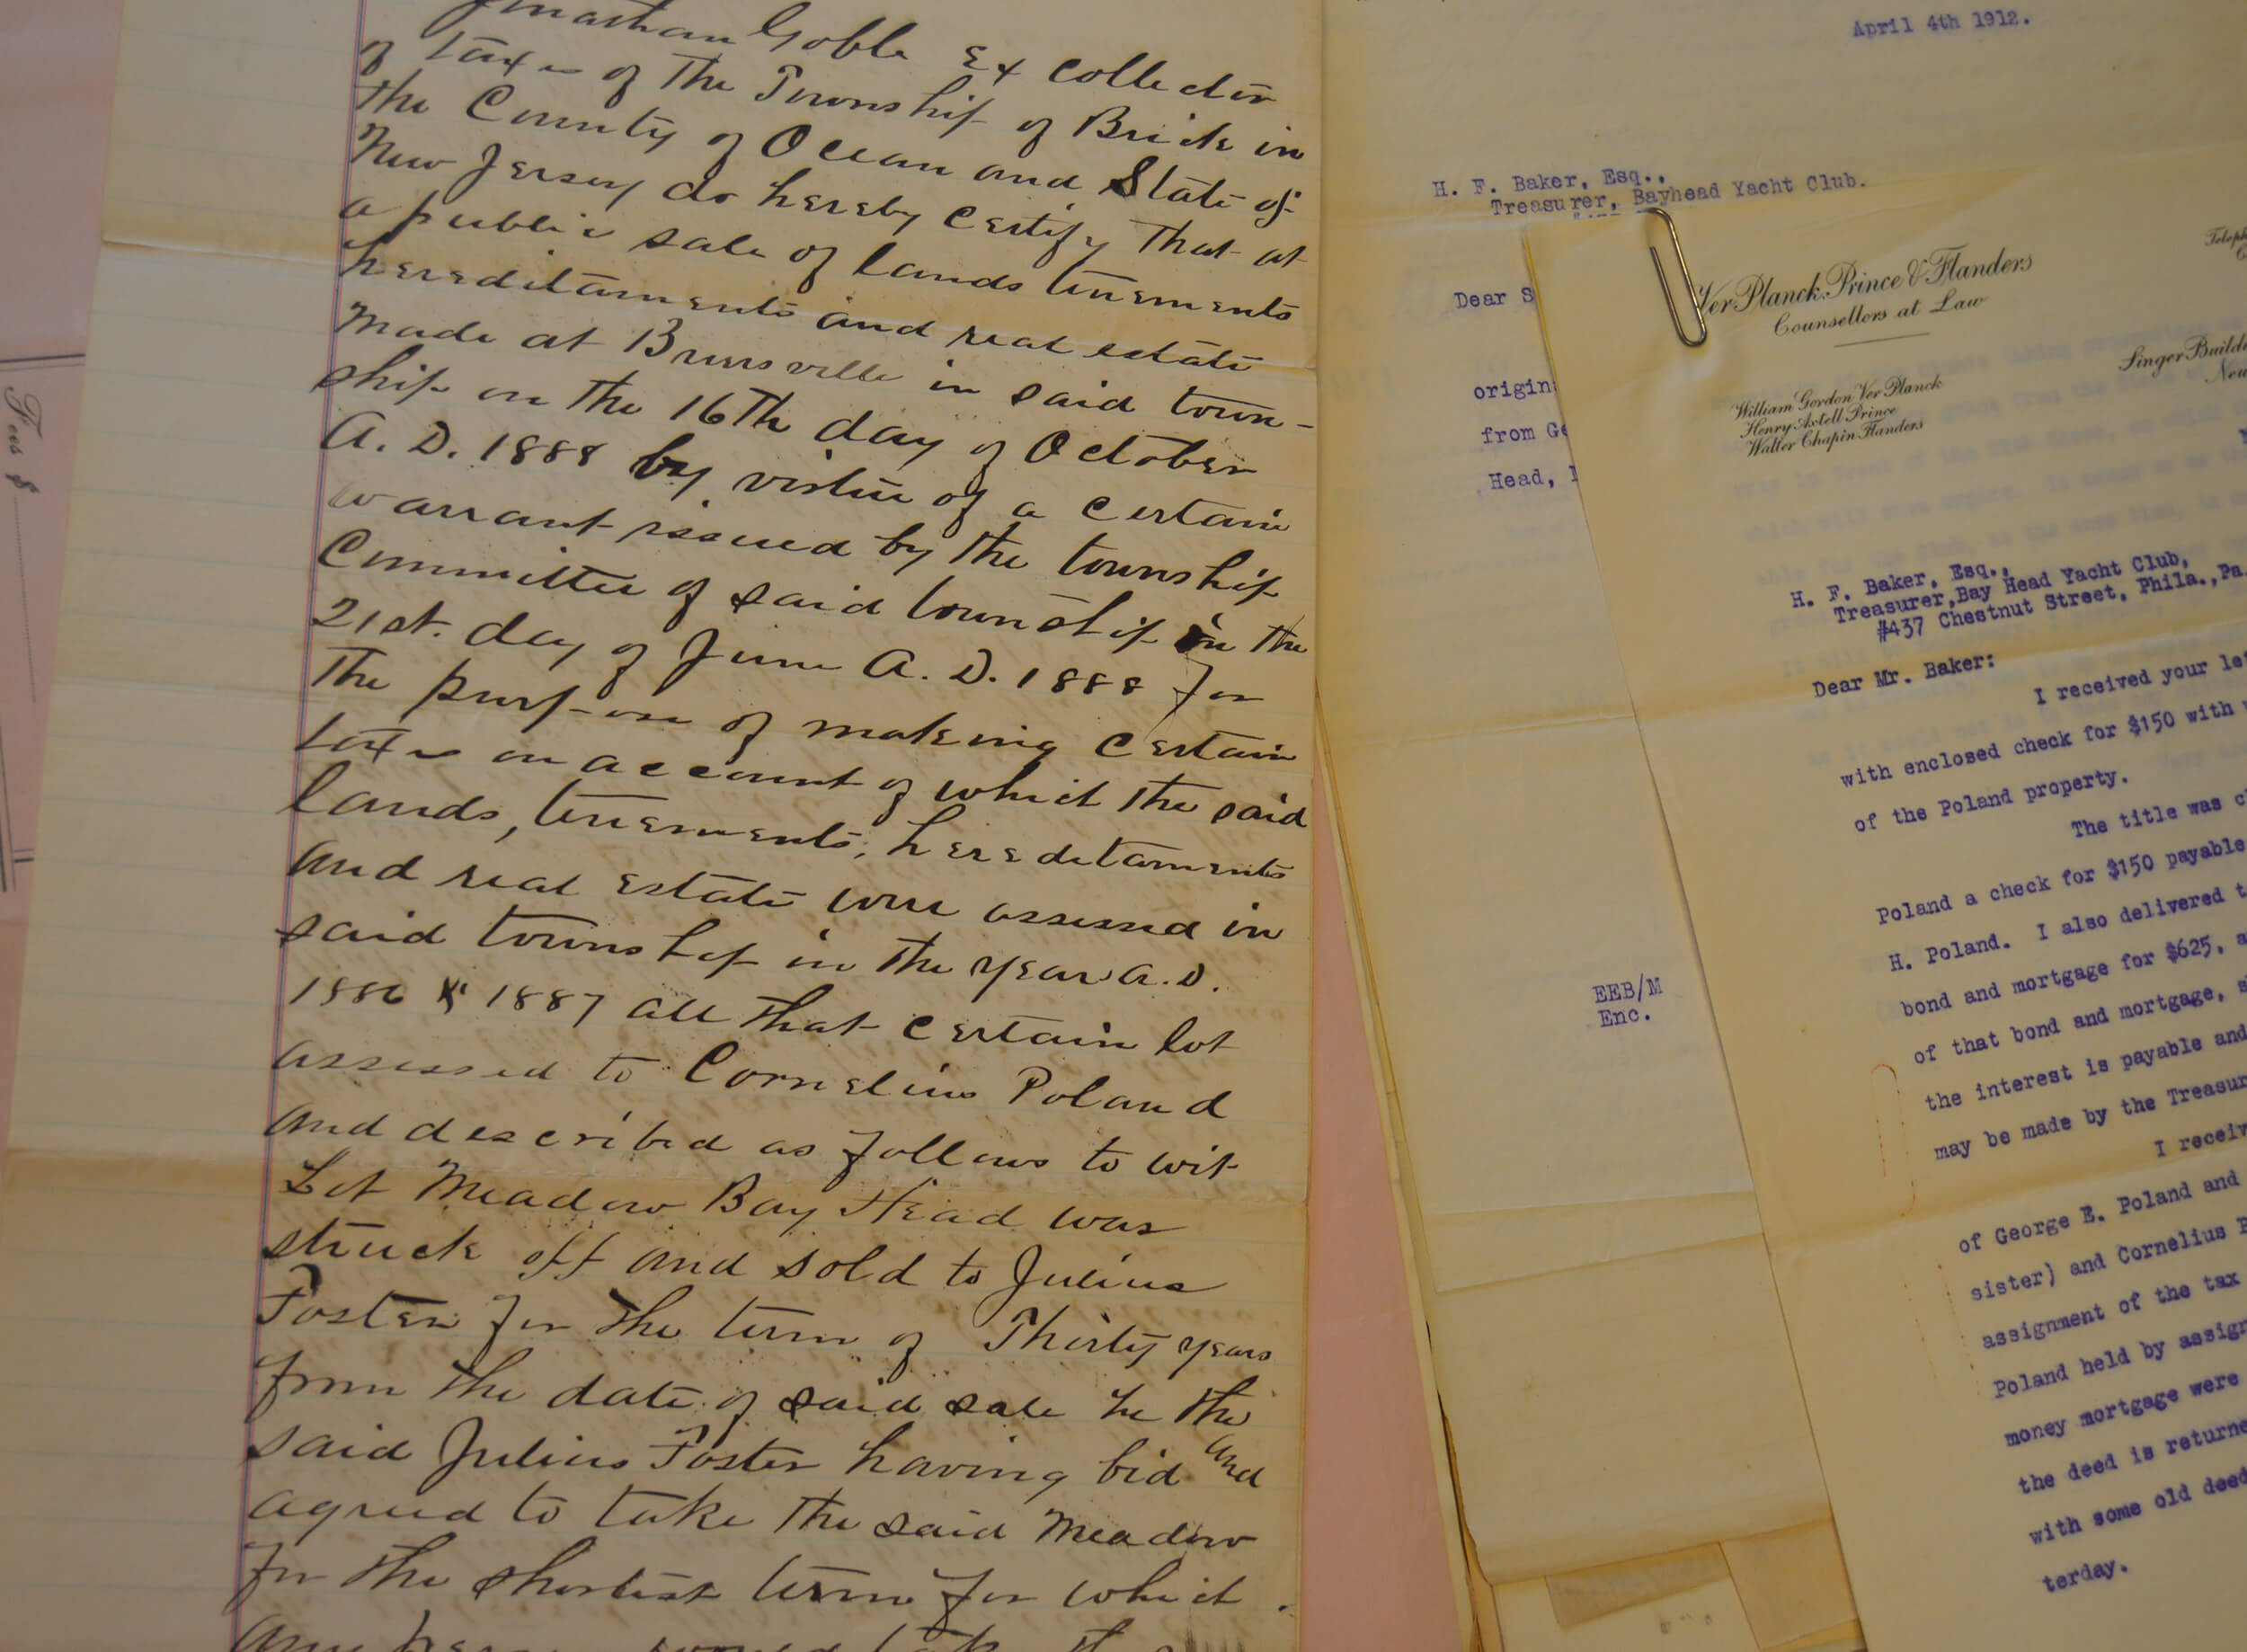 Jonathan Goble Ex Collector
of taxes of the Township of Brick in
the County of Ocean and State of
New Jersey do hereby certify that at
a public sale of lands tenements
hereditaments and real estate
made at Burrsville in said town-
ship on the 16th day of October
A. D. 1888 by virtue of a certain
warrant issued by the township
Committee of said township on the
21st. day of June A. D. 1888 for
the purpose of making certain
taxes on account of which the said
lands, tenements, hereditaments
and real estate were assessed in
said township in the year A. D.
1886 & 1887 all that certain lot
assessed to Cornelius Poland
and described as follows to wit
Lot Meadow Bay Head was
struck off and sold to Julius
Foster for the term of Thirty years
from the date of said sale he the
said Julius Foster having bid and
agreed to take the said Meadow
for the shortest term for which
any person would take
Fees $
April 4th 1912.
H. F. Baker, Esq.,
Treasurer, Bayhead Yacht Club.
Dear S
origin
from Ge
Head,
EEB/M
Enc.
Ver Planck, Prince & Flanders
Counsellors at Law
Teleph
Singer Buildi
New
William Gordon Ver Planck
Henry Axtell Prince
Walter Chapin Flanders
H. F. Baker, Esq.,
Treasurer, Bay Head Yacht Club,
#437 Chestnut Street, Phila., Pa.
Dear Mr. Baker:
I received your let
with enclosed check for $150 with
of the Poland property.
The title was c
Poland a check for $150 payable
H. Poland. I also delivered t
bond and mortgage for $625, a
of that bond and mortgage, s
the interest is payable and
may be made by the Treasur
I receiv
of George E. Poland and
sister) and Cornelius P
assignment of the tax
Poland held by assign
money mortgage were
the deed is returne
with some old deed
terday.